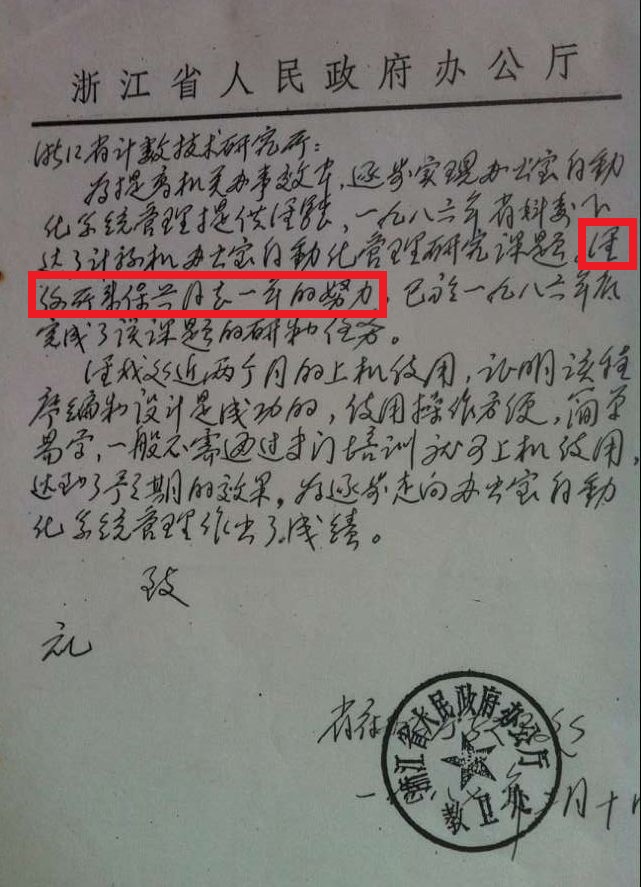 浙江省人民政府办公厅
浙江省计算技术研究所：
为提高机关办事效率，逐步实现办公室自动
化系统管理提供经验，一九八六年省科委下
达了计算机办公室自动化管理研究课题，经
你所朱保兴同志一年的努力，已于一九八六年底
完成了该课题的研制任务。
经我处近两个月的上机使用，证明该程
序编制设计是成功的，使用操作方便，简单
易学，一般不需通过专门培训就可上机使用，
达到了予期的效果，为逐步走向办公室自动
化系统管理作出了成绩。
致
礼
省
浙江省人民政府办公厅
教卫处
一 年 月十